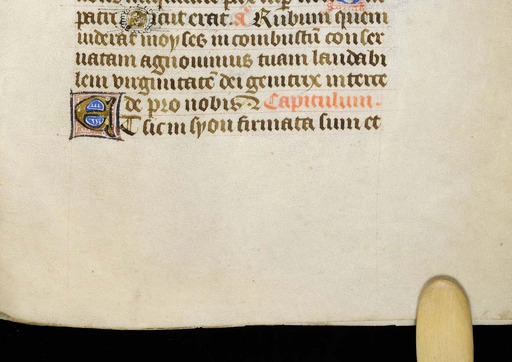 patri sicut erat. a Rubum quem
uiderat moyses in combustū conser
uatam agnouimus tuam laudabi
lem uirginitatē dei genitrix interce
de pro nobis Capitulum.
Et sic in syon firmata sum et